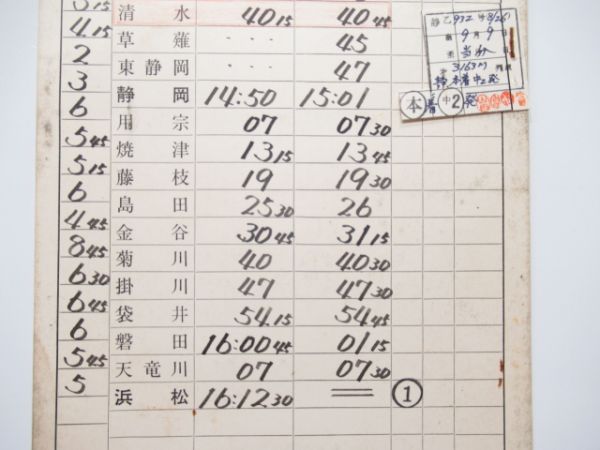 3 15 清水 40 15 40 45
4 15 草薙 ・・・ 45
2 東静岡 ・・・ 47
3 静岡 14:50 15:01
6 用宗 07 07 30
5 45 焼津 13 15 13 45
5 15 藤枝 19 19 30
6 島田 25 30 26
4 45 金谷 30 45 31 15
8 45 菊川 40 40 30
6 30 掛川 47 47 30
6 45 袋井 54 15 54 45
6 磐田 16:00 45 01 15
5 45 天竜川 07 07 30
5 浜松 16:12 30 ＝ ①
静乙972号(8/26)
9月9日
当分
3163M
本着中2発
本着中2発